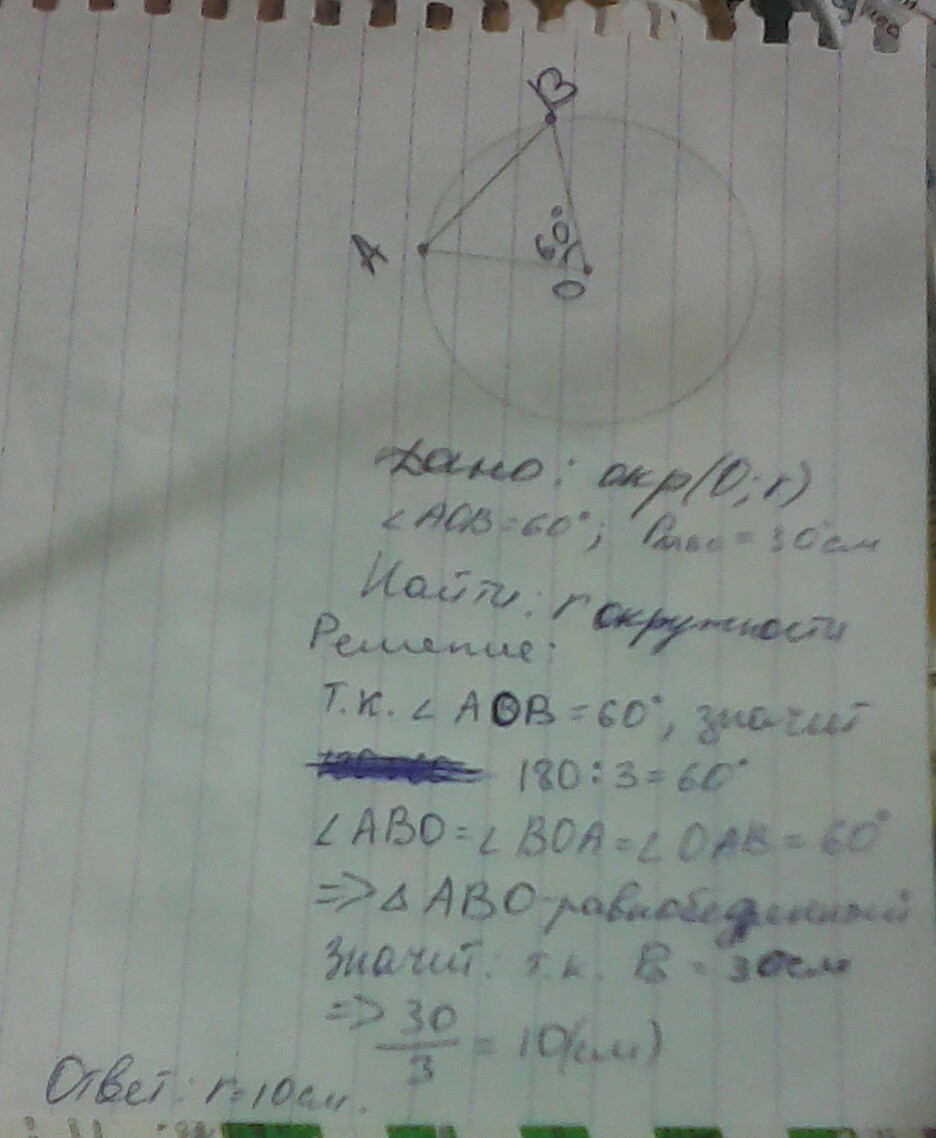 B
A
60°
O
Дано: окр(O; r)
∠AOB=60°; P = 30см
Найти: r окружности
Решение:
Т.к. ∠AOB=60°, значит
180:3=60°
∠ABO=∠BOA=∠OAB=60°
=>△ABO-равнобедренный
Значит: т.к. P = 30см
=> 30/3 = 10(см)
Ответ: r=10см.